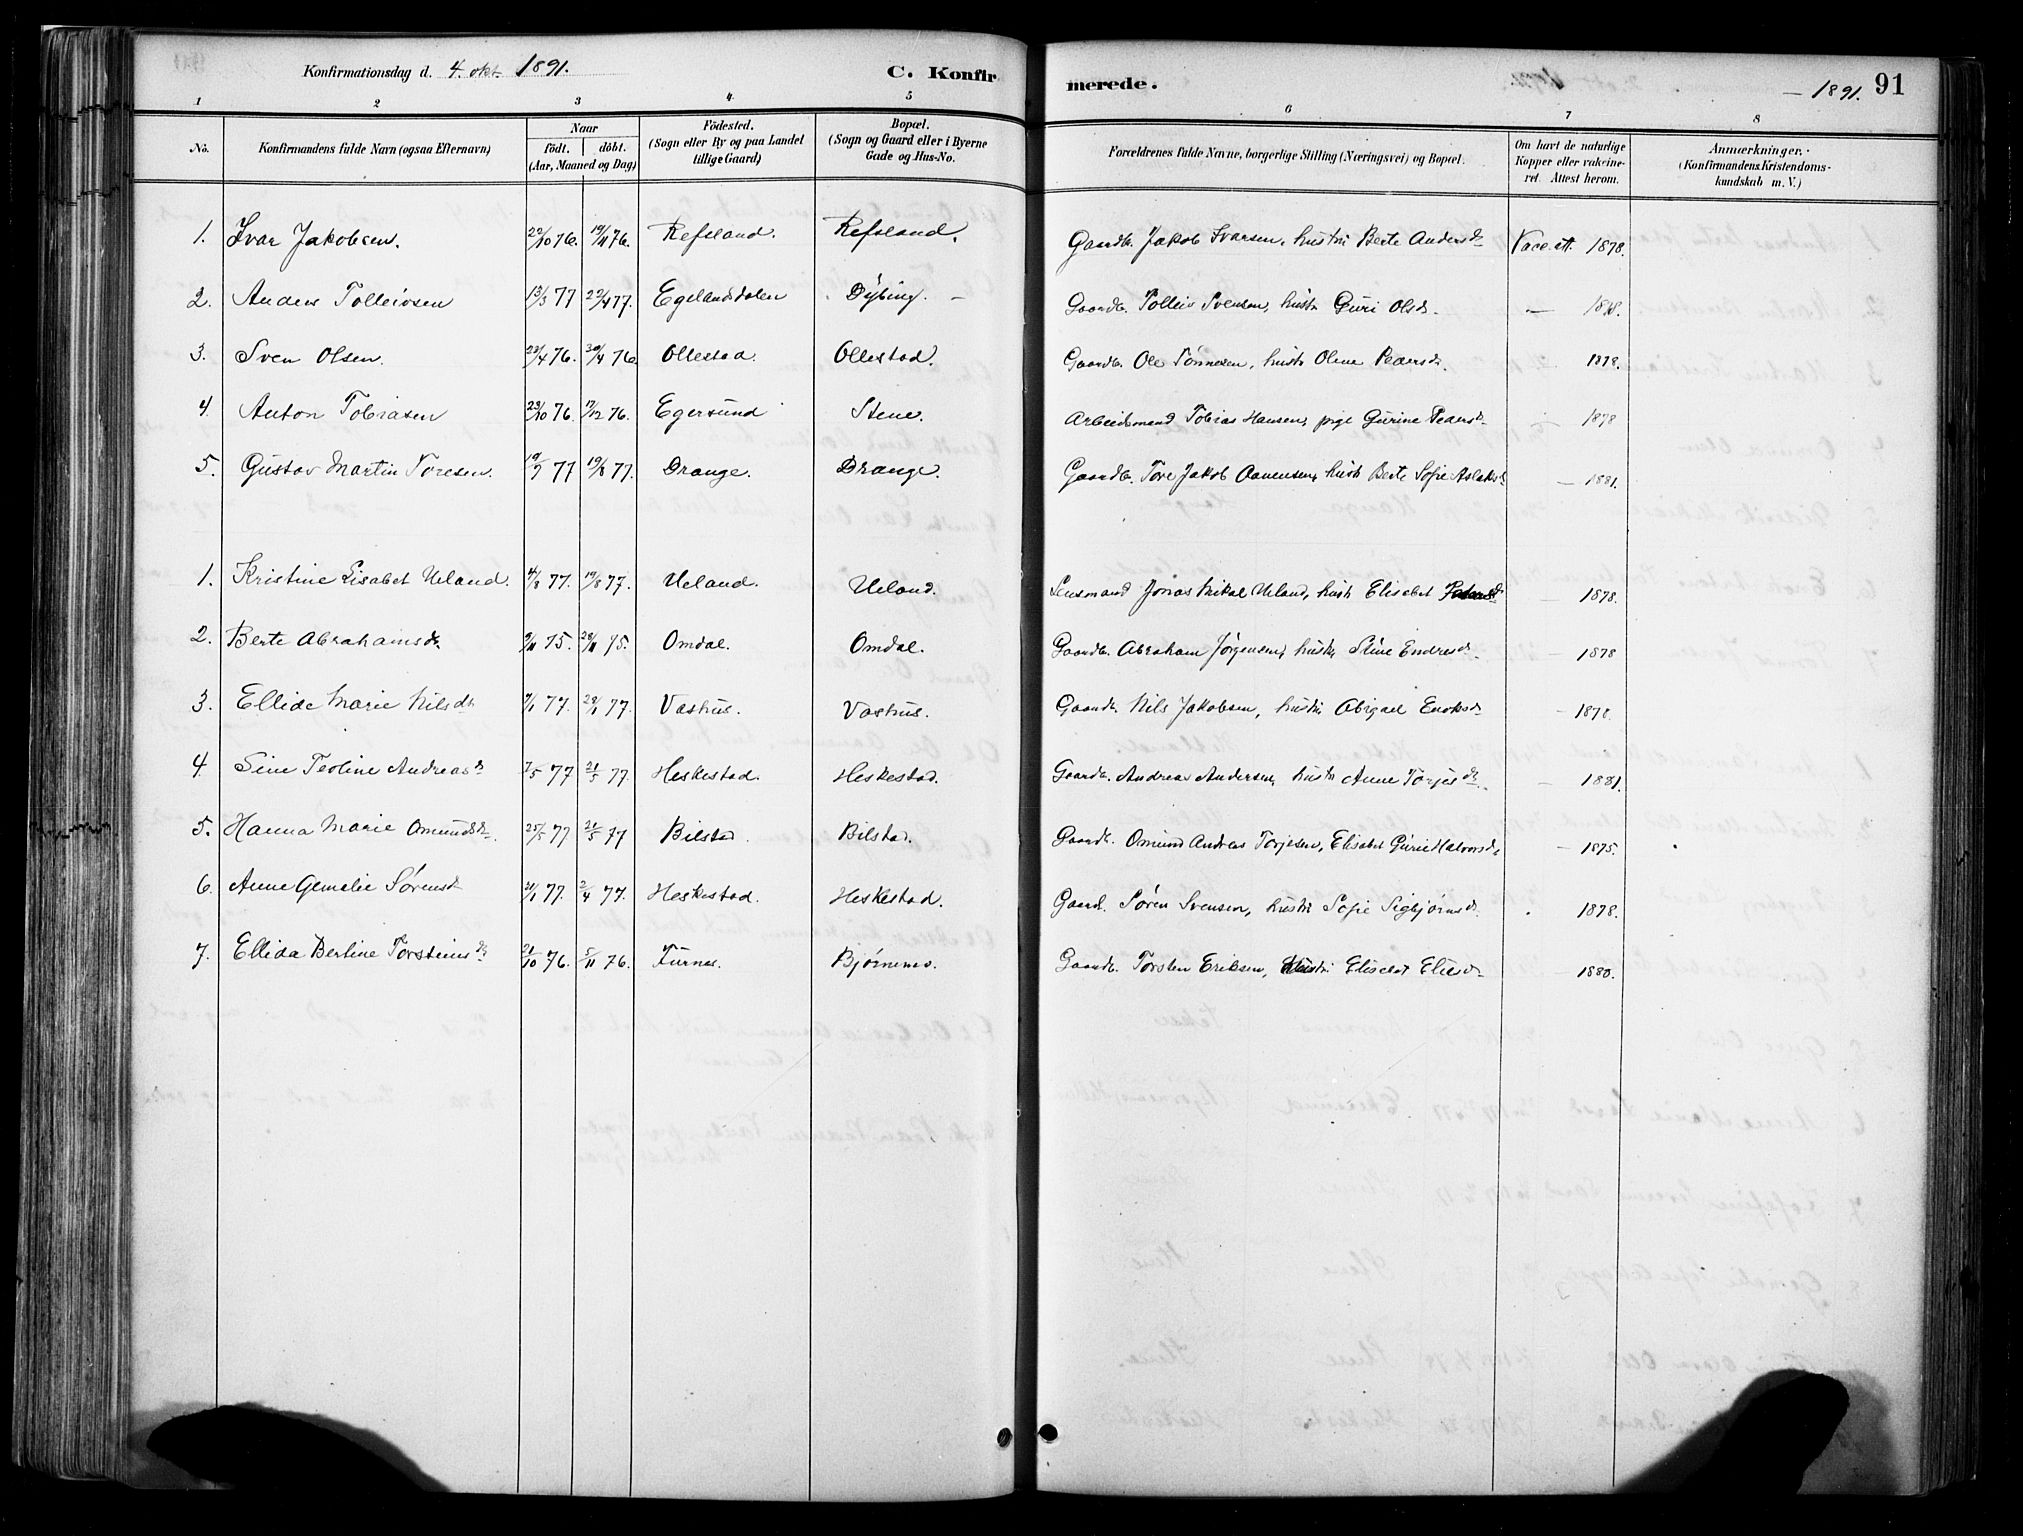 Konfirmationsdag d. 4. okt. 1891.
C. Konfir
merede.
- 1891. 91
1 2 3 4 5 6 7 8
No.
Konfirmandens fulde Navn (ogsaa Efternavn)
Naar
födt. döbt.
(Aar, Maaned og Dag)
Födested.
(Sogn eller By og paa Landet
tillige Gaard)
Bopæl.
(Sogn og Gaard eller i Byerne
Gade og Hus-No.
Forældrenes fulde Navne, borgerlige Stilling (Næringsvei) og Bopæl.
Om havt de naturlige
Kopper eller vakcine-
ret. Attest herom.
Anmærkninger.
(Konfirmandens Kristendoms-
kundskab m. V.)
1. Ivar Jakobsen. 22/10 76. 19/11 76. Refsland. Refsland. Gaardb. Jakob Ivarsen, hustru Berte Andersdr Vacc. att. 1878.
2. Anders Tolleivsen 13/3 77 22/4 77. Egelandsdalen Dybing. - Gaardb. Tolleiv Svensen, hustr Guri Olsdr. — 1878.
3. Sven Olsen. 22/4 76. 30/4 76. Ollestad. Ollestad. Gaardb. Ole Tønnesen, hustr Olene Pedersdr. 1878.
4. Anton Tobiasen 23/10 76. 17/12 76. Egersund Stene. Arbeidsmand Tobias Hansen, pige Gurine Pedersdr - 1878
5. Gustav Martin Toresen. 19/7 77 19/8 77. Drange. Drange. Gaardb. Tore Jakob Aanensen, hustr Berte Sofie Aslaksdr — 1881.
1. Kristine Lisabet Ueland. 4/8 77. 19/8 77. Ueland. Ueland. Lensmand Jonas Mikal Ueland, hustr Elisabet - 1878.
2. Berte Abrahamsdr 9/11 75. 28/11 75. Omdal. Omdal. Gaardb. Abraham Jørgensen, hustr Stine Endresdr. - 1878
3. Ellide Marie Nilsdr 9/1 77. 29/1 77. Vashus. Vashus. Gaardb. Nils Jakobsen, hustru Abigael Enoksdr - 1878.
4. Sine Teoline Andreasdr 7/5 77 21/5 77. Heskestad. Heskestad. Gaardb. Andreas Andersen, hustr Anne Torjesdr. - 1881.
5. Hanna Marie Omundsdr. 25/5 77 21/5 77 Bilstad. Bilstad. Gaardb. Omund Andreas Torjesen, Elisabet Gurie Halvorsdr - 1875.
6. Anne Gemalie Sørensdr 21/1 77. 2/4 77. Heskestad. Heskestad. Gaardb. Søren Svensen, hustr Sofie Sigbjørnsdr. 1878.
7. Ellida Bertine Torsteinsdr 21/10 76. 5/11 76. Furnes. Bjørnemo. Gaardb. Torsten Eriksen, hustru Elisabet Eliesdr 1880.